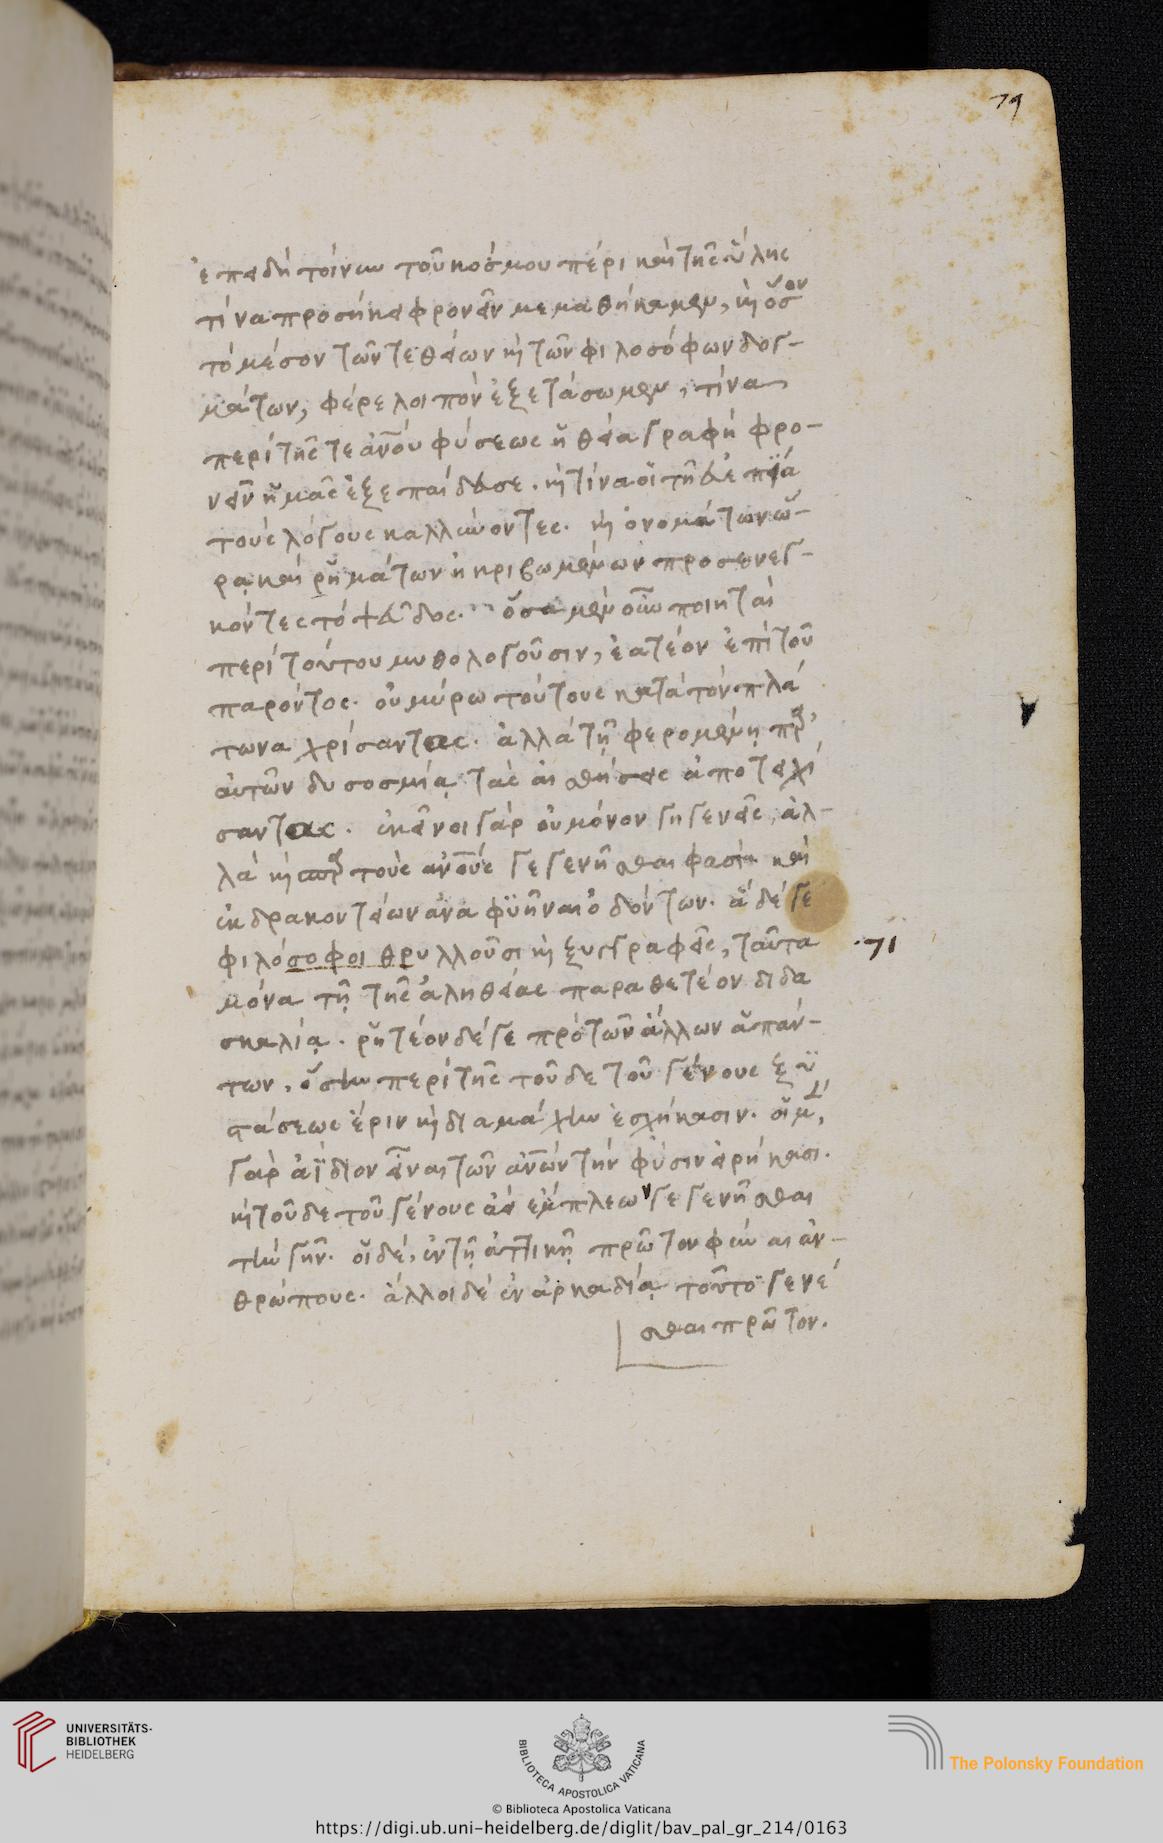 79
ἐπειδὴ τοίνυν τοῦ κόσμου πέρι καὶ τῆς ὕλης
τίνα προσήκει φρονεῖν μεμαθήκαμεν, κὶ ὅσον
τὸ μέσον τῶν τε θείων κὶ τῶν φιλοσόφων δογ-
μάτων, φέρε λοιπὸν ἐξετάσωμεν, τίνα
περὶ τῆς τε ἀνου φύσεως ἡ θεία γραφὴ φρο-
νεῖν ἡμᾶς ἐξεπαίδευσε. κὶ τίνα οἱ τῇ εὐεπείᾳ
τοὺς λόγους καλλύνοντες. κὶ ὀνομάτων ὥ-
ρᾳ καὶ ῥημάτων ἠκριβωμένων προσενεγ-
κόντες τὸ ψεῦδος. ὅσα μὲν οὖν ποιηταὶ
περὶ τούτου μυθολογοῦσιν, ἐατέον ἐπὶ τοῦ
παρόντος. οὐ μύρῳ τούτους κατὰ τὸν πλά
τωνα χρίσαντας. ἀλλὰ τῇ φερομένῃ παρ'
αὐτῶν δυσοσμίᾳ τὰς αἰσθήσεις ἀποτειχί
σαντας. ἐκεῖνοι γὰρ οὐ μόνον γηγενεῖς, ἀλ-
λὰ κὶ τοὺς ανους γεγενῆσθαι φασὶν καὶ
ἐκ δρακοντείων ἀναφϋῆναι ὀδόντων. ἃ δέ γε
φιλόσοφοι θρυλλοῦσι κὶ ξυγγραφεῖς, ταῦτα
·71
μόνα τῇ τῆς ἀληθείας παραθετέον διδα
σκαλίᾳ. ῥητέον δέ γε πρὸ τῶν ἄλλων ἁπάν-
των, ὅσην περὶ τῆς τοῦδε τοῦ γένους ξυ
στάσεως ἔριν κὶ διαμάχην ἐσχήκασιν. οἱ μὲν
γὰρ ἀΐδιον εἶναι τῶν ἀνων τὴν φύσιν εἰρήκασι.
κὶ τοῦδε τοῦ γένους ἀεὶ ἔμπλεων γεγενῆσθαι
τὴν γῆν. οἱ δέ, ἐν τῇ ἀττικῇ πρῶτον φῦναι ἀν-
θρώπους. ἄλλοι δὲ ἐν ἀρκαδίᾳ τοῦτο γενέ
σθαι πρῶτον.
UNIVERSITÄTS-
BIBLIOTHEK
HEIDELBERG
BIBLIOTECA APOSTOLICA VATICANA
The Polonsky Foundation
© Biblioteca Apostolica Vaticana
https://digi.ub.uni-heidelberg.de/diglit/bav_pal_gr_214/0163